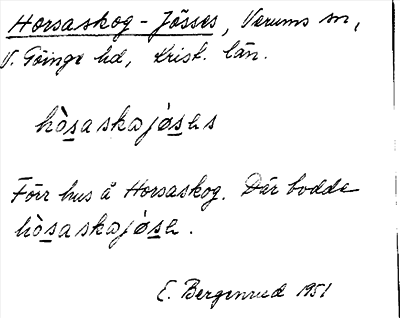 Horsaskog-Jösses, Verums sn,
V. Göinge hd, Krist. län.
hòsaskajøses
Förr hus å Horsaskog. Där bodde
hòsaskajøse.
E. Bergenrud 1951